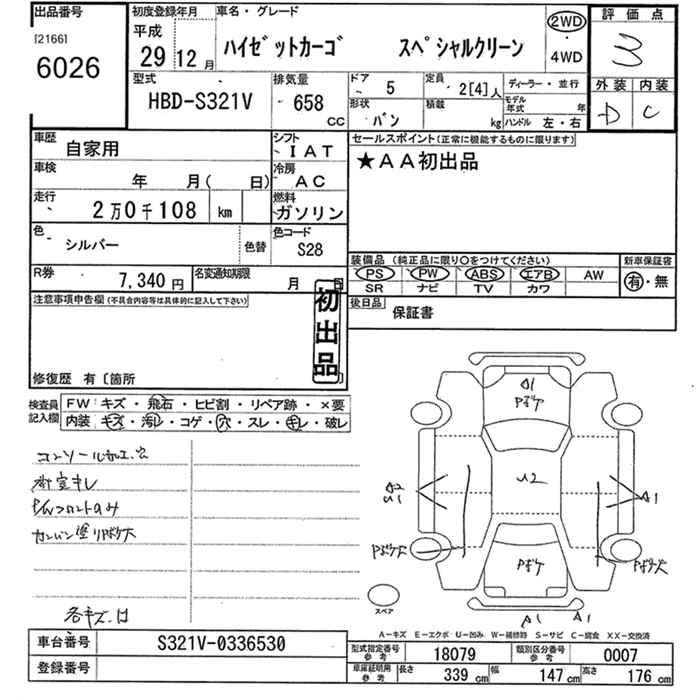 出品番号
[2166]
6026
初度登録年月
平成
29 12 月
車名・グレード
ハイゼットカーゴ スペシャルクリーン
2WD
・
4WD
評価点
3
外装 内装
D C
型式
HBD-S321V
排気量
658
CC
ドア
5
定員
2[4]人
ディーラー・並行
形状
バン
積載
kg
モデル年式 年
ハンドル 左・右
車歴
自家用
シフト
IAT
セールスポイント(正常に機能するものに限ります)
★AA初出品
車検
年 月( 日)
冷房
AC
走行
2万0千108 km
燃料
ガソリン
色
シルバー
色替
色コード
S28
装備品 (純正品に限り○をつけてください)
新車保証書
PS PW ABS エアB AW
SR ナビ TV カワ
有・無
R券
7,340 円
名変通知期限
月 日
後日品
保証書
注意事項申告欄(不具合内容等は具体的に記入して下さい)
初出品
修復歴 有〔箇所
検査員記入欄
FW: キズ・飛石・ヒビ割・リペア跡・×要
内装: キズ・汚レ・コゲ・穴・スレ・キレ・破レ
コンソール加工穴
カンバン塗リボケ大
各キズ・凹
A1
ボケ
U2
A2
U1
A1
ボケ
A1 A1
スペア
A-キズ E-エクボ U-凹み W-補修跡 S-サビ C-腐食 XX-交換済
車台番号
S321V-0336530
登録番号
型式指定番号
参考
18079
類別区分番号
参考
0007
車庫証明用
参考
長さ 339 cm
幅 147 cm
高さ 176 cm